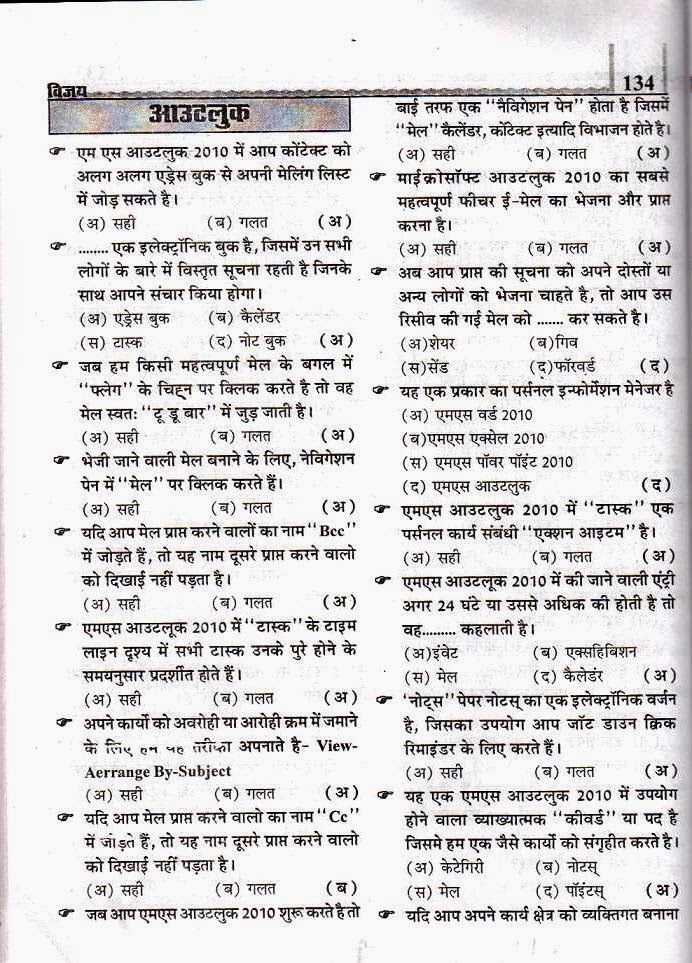 विजय
134
आउटलुक
☞ एम एस आउटलुक 2010 में आप कोंटेक्ट को
अलग अलग एड्रेस बुक से अपनी मेलिंग लिस्ट
में जोड़ सकते है।
(अ) सही (ब) गलत (अ)
☞ ........ एक इलेक्ट्रॉनिक बुक है, जिसमें उन सभी
लोगों के बारे में विस्तृत सूचना रहती है जिनके
साथ आपने संचार किया होगा।
(अ) एड्रेस बुक (ब) कैलेंडर
(स) टास्क (द) नोट बुक (अ)
☞ जब हम किसी महत्वपूर्ण मेल के बगल में
“फ्लेग” के चिह्न पर क्लिक करते है तो वह
मेल स्वतः “टू डू बार” में जुड़ जाती है।
(अ) सही (ब) गलत (अ)
☞ भेजी जाने वाली मेल बनाने के लिए, नेविगेशन
पेन में “मेल” पर क्लिक करते हैं।
(अ) सही (ब) गलत (अ)
☞ यदि आप मेल प्राप्त करने वालों का नाम “Bcc”
में जोड़ते हैं, तो यह नाम दूसरे प्राप्त करने वालो
को दिखाई नहीं पड़ता है।
(अ) सही (ब) गलत (अ)
☞ एमएस आउटलुक 2010 में “टास्क” के टाइम
लाइन दृश्य में सभी टास्क उनके पुरे होने के
समयनुसार प्रदर्शीत होते हैं।
(अ) सही (ब) गलत (अ)
☞ अपने कार्यो को अवरोही या आरोही क्रम में जमाने
के लिए हम यह तरीका अपनाते है- View-
Aerrange By-Subject
(अ) सही (ब) गलत (अ)
☞ यदि आप मेल प्राप्त करने वालो का नाम “Cc”
में जोड़ते हैं, तो यह नाम दूसरे प्राप्त करने वालो
को दिखाई नहीं पड़ता है।
(अ) सही (ब) गलत (ब)
☞ जब आप एमएस आउटलुक 2010 शुरू करते है तो
बाई तरफ एक “नैविगेशन पेन” होता है जिसमें
“मेल” कैलेंडर, कोंटेक्ट इत्यादि विभाजन होते है।
(अ) सही (ब) गलत (अ)
☞ माईक्रोसॉफ्ट आउटलुक 2010 का सबसे
महत्वपूर्ण फीचर ई-मेल का भेजना और प्राप्त
करना है।
(अ) सही (ब) गलत (अ)
☞ अब आप प्राप्त की सूचना को अपने दोस्तों या
अन्य लोगों को भेजना चाहते है, तो आप उस
रिसीव की गई मेल को ....... कर सकते है।
(अ)शेयर (ब)गिव
(स)सेंड (द)फॉरवर्ड (द)
☞ यह एक प्रकार का पर्सनल इन्फोर्मेशन मेनेजर है
(अ) एमएस वर्ड 2010
(ब)एमएस एक्सेल 2010
(स) एमएस पॉवर पॉइंट 2010
(द) एमएस आउटलुक (द)
☞ एमएस आउटलुक 2010 में “टास्क” एक
पर्सनल कार्य संबंधी “एक्शन आइटम” है।
(अ) सही (ब) गलत (अ)
☞ एमएस आउटलूक 2010 में की जाने वाली एंट्री
अगर 24 घंटे या उससे अधिक की होती है तो
वह......... कहलाती है।
(अ)इंवेट (ब) एक्सहिविशन
(स) मेल (द) कैलेडंर (अ)
☞ 'नोट्स” पेपर नोटस् का एक इलेक्ट्रॉनिक वर्जन
है, जिसका उपयोग आप जॉट डाउन क्विक
रिमाइंडर के लिए करते हैं।
(अ) सही (ब) गलत (अ)
☞ यह एक एमएस आउटलुक 2010 में उपयोग
होने वाला व्याख्यात्मक “कीवर्ड” या पद है
जिसमे हम एक जैसे कार्यो को संगृहीत करते है।
(अ) केटेगिरी (ब) नोटस्
(स) मेल (द) पॉइंटस् (अ)
☞ यदि आप अपने कार्य क्षेत्र को व्यक्तिगत बनाना